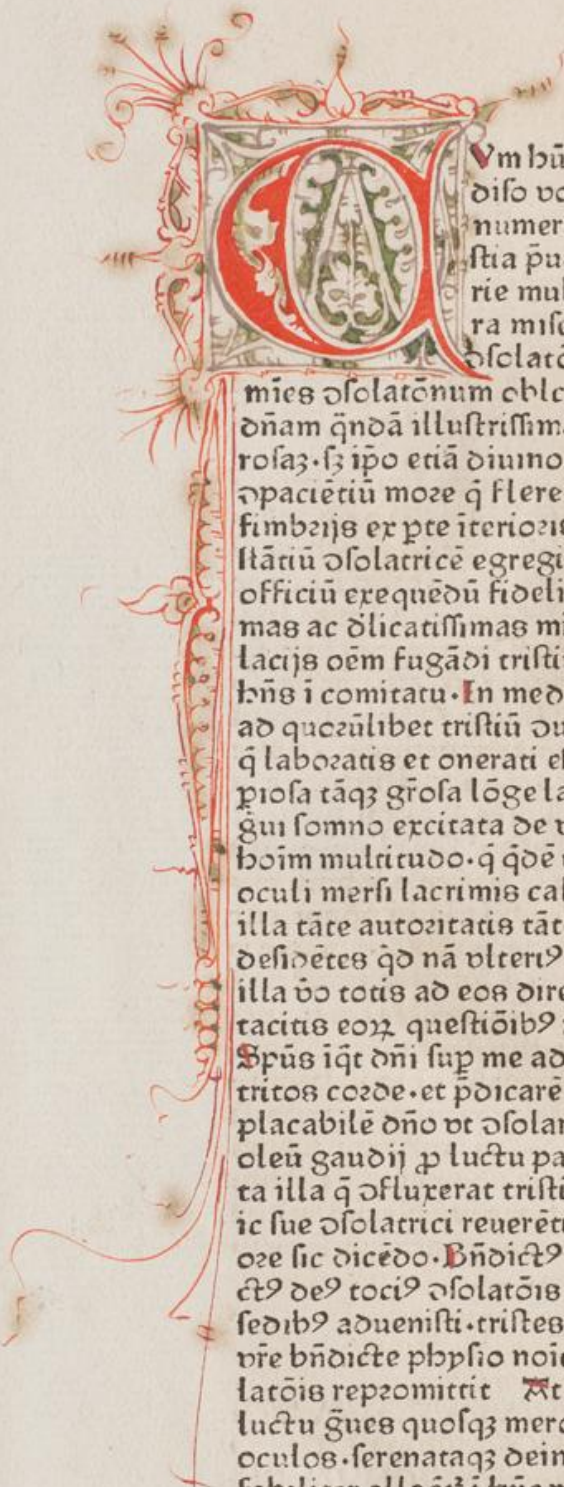 CVm hū
diso vo
numer
stia p̄u
rie mul
ra misc
ↄsolatō
mīes ↄsolatōnum oblo
dn̄am q̄ndā illustrissim
rosaꝫ·sꝫ ip̄o etiā diuino
ↄpaciētiū more q̄ flere
fimbrijs ex ꝑte īterioris
stātiū ↄsolatricē egregi
officiū exequēdū fideli
mas ac dlicatissimas mi
lacijs oēm fugādi tristi
bn̄s ī comitatu·In med
ad quorūlibet tristiū du
q̄ laboratis et onerati e
piosa tāqꝫ gr̄osa lōge la
gui somno excitata de
hoīm multitudo·q̄ q̄dē
oculi mersi lacrimis cal
illa tāte autoritatis tāt
desidētes q̇d nā vlteriꝰ
illa v̄o totis ad eos dire
tacitis eoꝝ questiōibꝰ
Sp̄us īqt dn̄i suꝑ me ad
tritos corde·et p̄dicarē
placabilē dn̄o vt ↄsolar
oleū gaudij ꝓ luctu pa
ta illa q̄ ↄfluxerat tristi
ic sue ↄsolatrici reuerēt
ore sic dicēdo·Bn̄dictꝰ
ctꝰ deꝰ totiꝰ ↄsolatōis
sedibꝰ aduenisti·tristes
vr̄e bn̄dicte phisio noī
latōis repromittit At
luctu ḡues quosqꝫ mer
oculos·serenataqꝫ dein